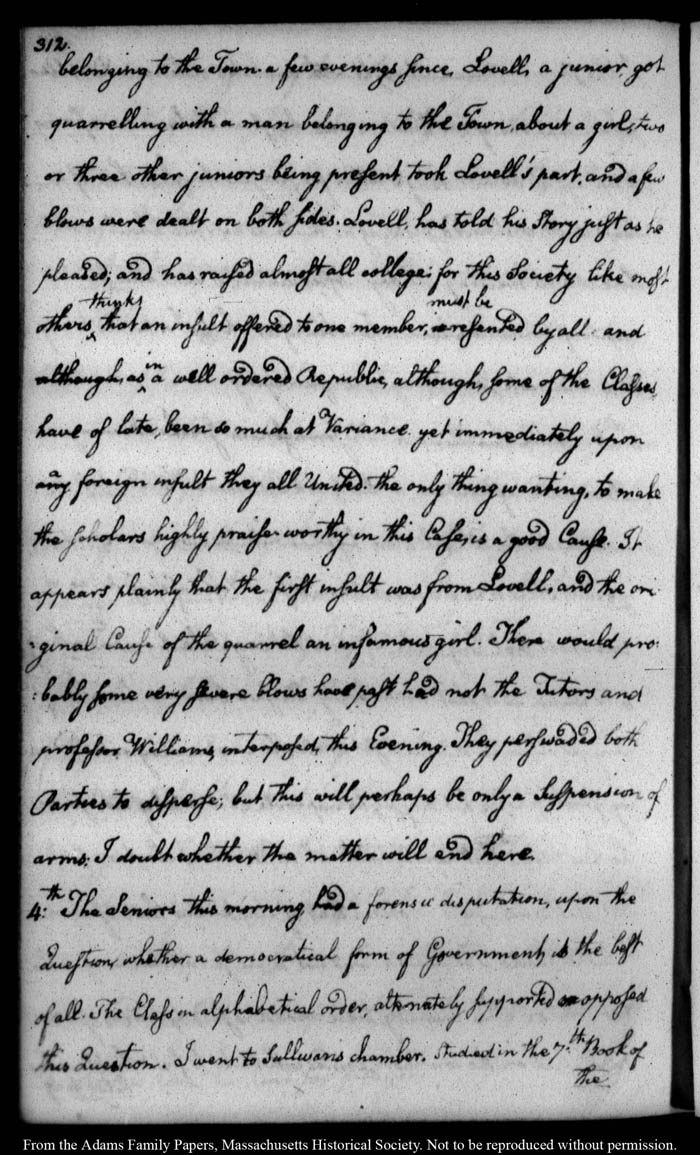 312.
belonging to the Town. a few evenings since, Lovell, a junior, got
quarrelling with a man belonging to the Town, about a girl, two
or three other juniors being present took Lovell's part, and a few
blows were dealt on both sides. Lovell, has told his Story just as he
pleased; and has raised almost all college: for this Society like most
others, thinks that an insult offered to one member, must be resented by all. and
although, as in a well ordered Republic, although, some of the Classes
have of late, been so much at Variance. yet immediately upon
any foreign insult they all United. the only thing wanting, to make
the scholars highly praise-worthy in this Case, is a good Cause. It
appears plainly that the first insult was from Lovell, and the ori
:ginal Cause of the quarrel an infamous girl. There would pro:
:bably some very severe blows have past had not the Tutors and
professor Williams, interposed, this Evening. They perswaded both
Parties to disperse; but this will perhaps be only a Suspension of
arms: I doubt whether the matter will end here.
4:th The Seniors this morning had a forensic disputation, upon the
Question, whether a democratical form of Government, is the best
of all. The Class in alphabetical order, alternately supported or opposed
this Question. I went to Sullivans chamber. Studied in the 7:th Book of
the
From the Adams Family Papers, Massachusetts Historical Society. Not to be reproduced without permission.